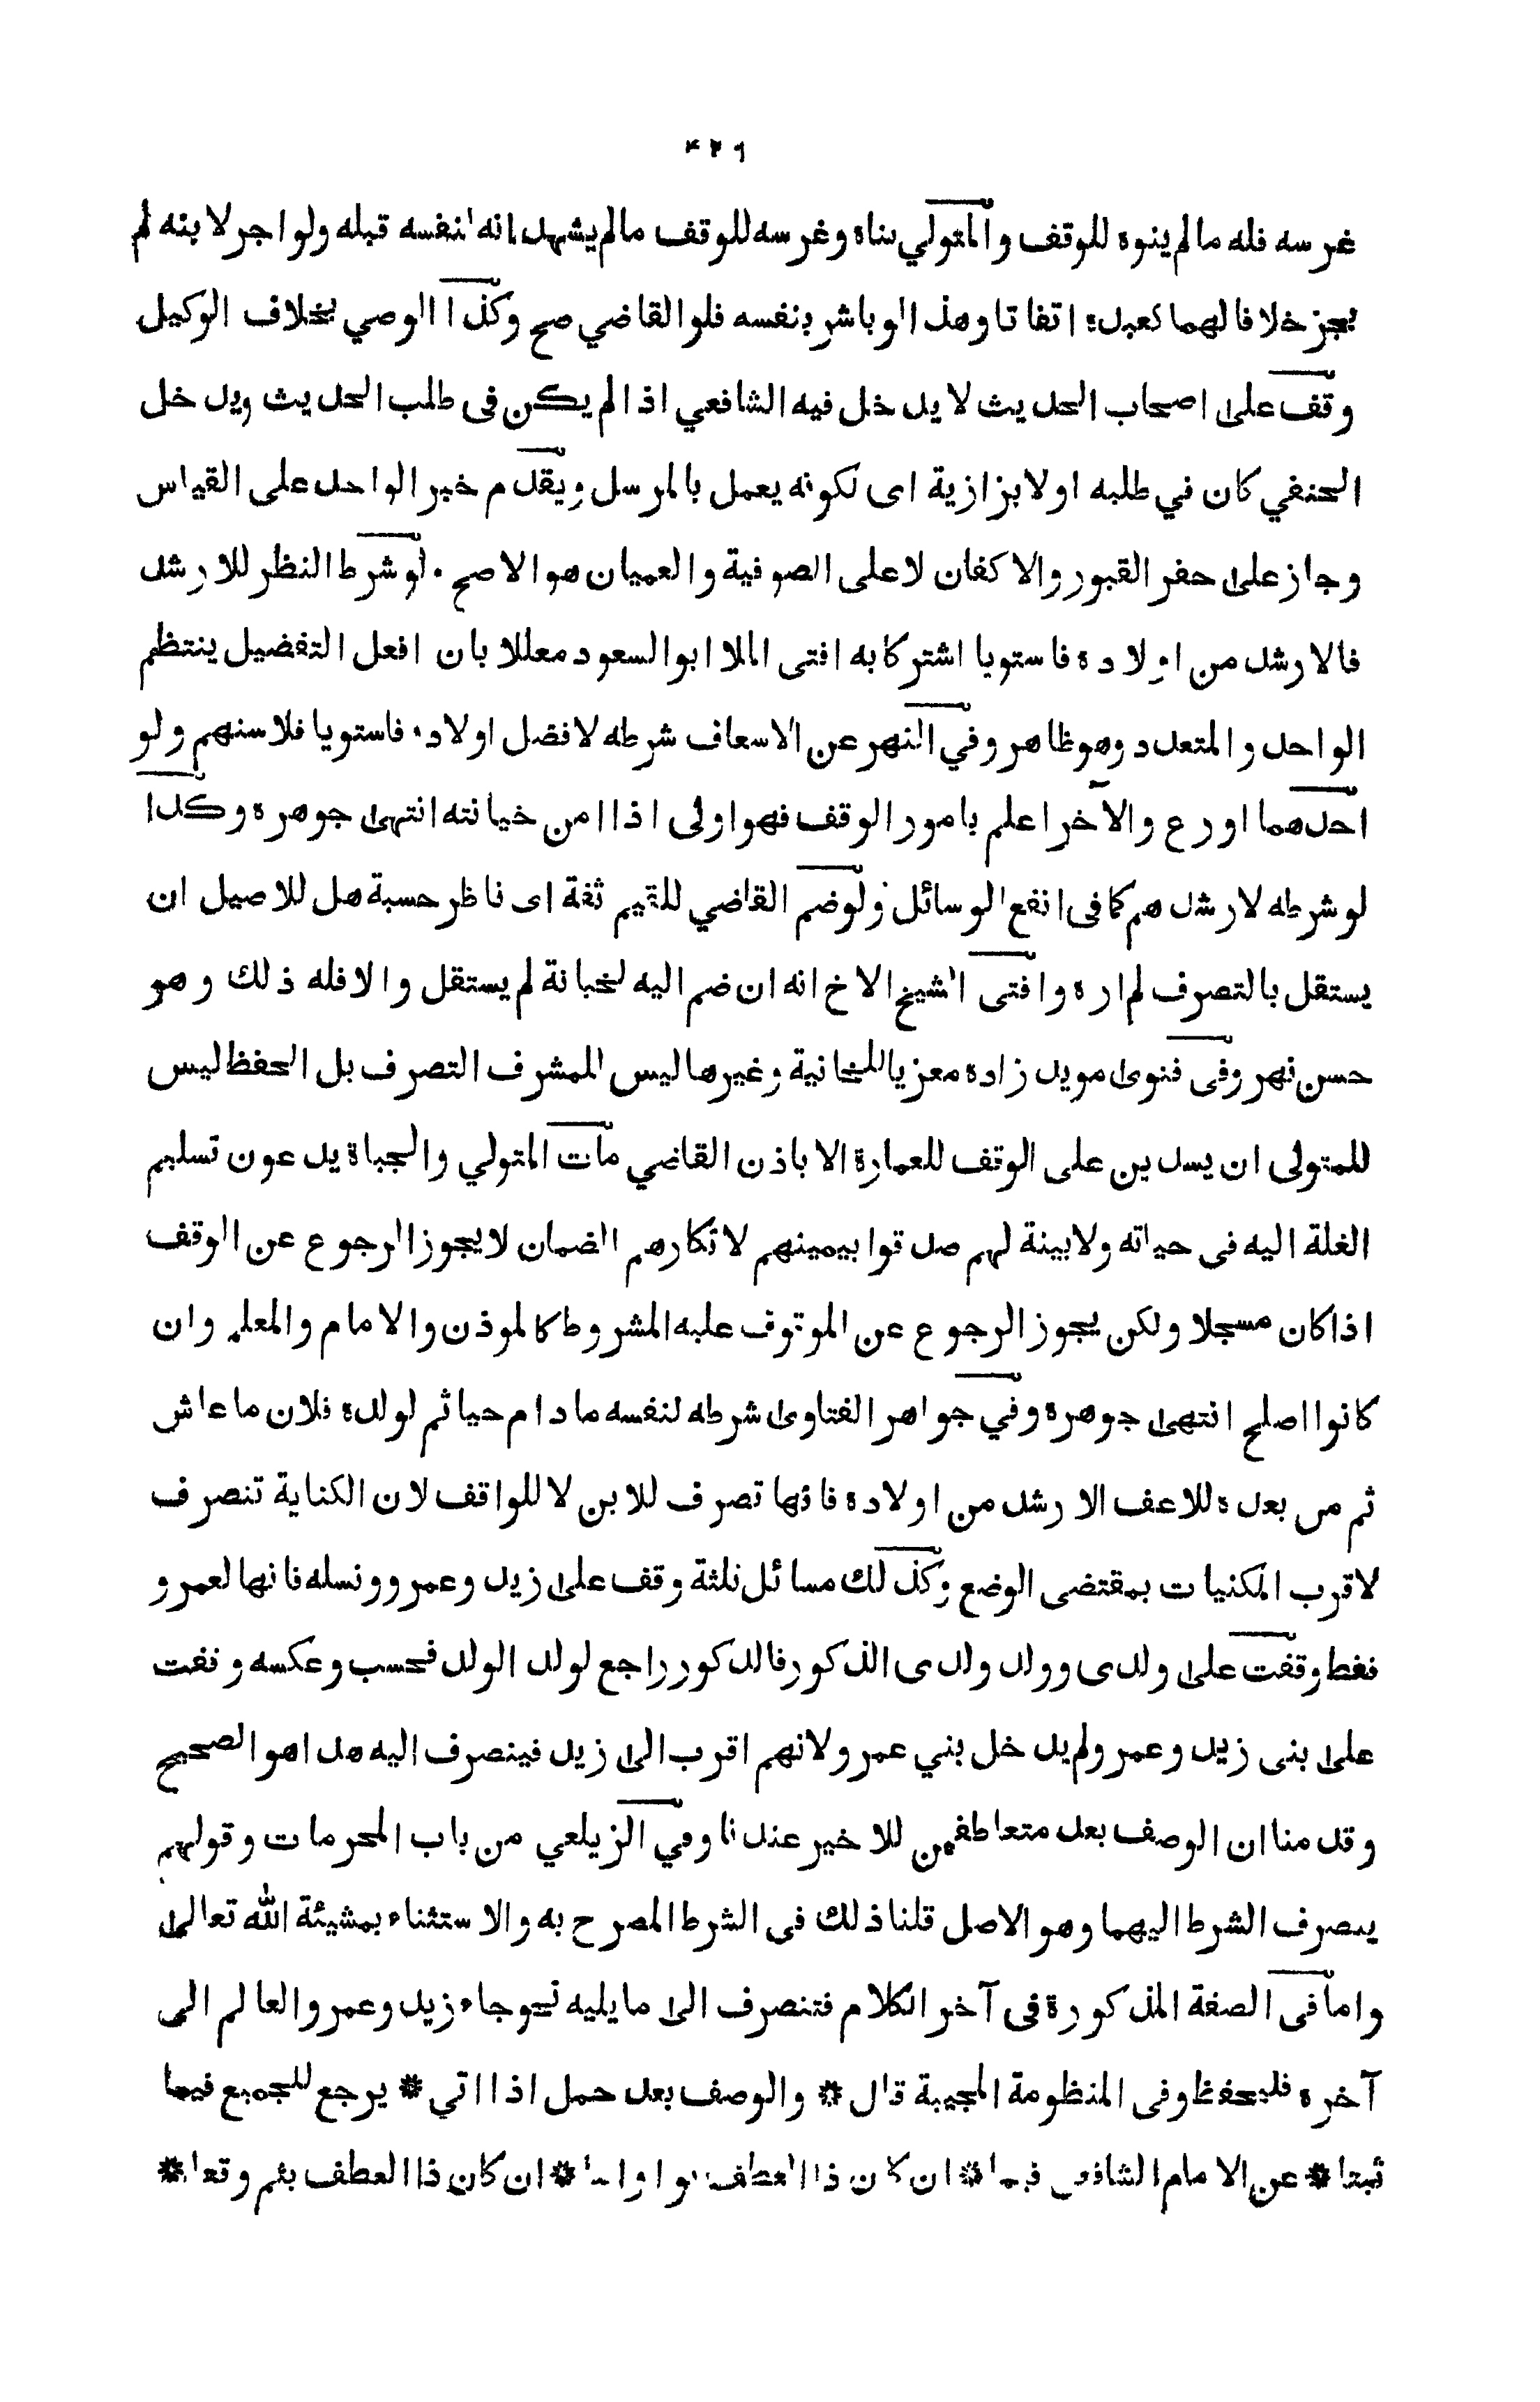 ۴۲۶
غرسه فله مالم ينوه للوقف والمتولي بناه وغرسه للوقف مالم يشهد انه لنفسه قبله ولو اجر لابنه لم
يجز خلافا لهما كعبده اتفاقا وهذا لو باشر بنفسه فلو القاضي صح وكذا الوصي بخلاف الوكيل
وقف على اصحاب الحديث لا يدخل فيه الشافعي اذا لم يكن فى طلب الحديث ويدخل
الحنفي كان في طلبه اولا بزازية اى لكونه يعمل بالمرسل ويقدم خبر الواحد على القياس
وجاز على حفر القبور والاكفان لا على الصوفية والعميان هو الاصح ٠ لو شرط النظر للارشد
فالارشد من اولاده فاستويا اشتركا به افتى الملا ابو السعود معللا بان افعل التفضيل ينتظم
الواحد والمتعدد وهو ظاهر وفي النهر عن الاسعاف شرطه لافضل اولاده فاستويا فلاسنهم ولو
احدهما اورع والآخر اعلم بامور الوقف فهو اولى اذا امن خيانته انتهى جوهرة وكذا
لو شرطه لارشدهم كما فى انفع الوسائل ولو ضم القاضي للقيم ثقة اى ناظر حسبة هل للاصيل ان
يستقل بالتصرف لم اره وافتى الشيخ الاخ انه ان ضم اليه لخيانة لم يستقل والا فله ذلك وهو
حسن نهر وفى فتوى مويد زاده معزيا للخانية وغيرها ليس للمشرف التصرف بل الحفظ ليس
للمتولى ان يستدين على الوقف للعمارة الا باذن القاضي مات المتولي والجباة يدعون تسليم
الغلة اليه فى حياته ولا بينة لهم صدقوا بيمينهم لانكارهم الضمان لا يجوز الرجوع عن الوقف
اذا كان مسجلا ولكن يجوز الرجوع عن الموقوف عليه المشروط كالموذن والامام والمعلم وان
كانوا اصلح انتهى جوهرة وفي جواهر الفتاوى شرطه لنفسه مادام حيا ثم لولده فلان ماعاش
ثم من بعده للاعف الارشد من اولاده فانها تصرف للابن لا للواقف لان الكناية تنصرف
لاقرب المكنيات بمقتضى الوضع وكذلك مسائل ثلثة وقف على زيد وعمرو ونسله فانها لعمرو
فقط وقفت على ولدى وولد ولدى الذكور فالذكور راجع لولد الولد فحسب وعكسه وقفت
على بنى زيد وعمرو لم يدخل بني عمرو لانهم اقرب الى زيد فينصرف اليه هذا هو الصحيح
وقدمنا ان الوصف بعد متعاطفين للاخير عندنا وفي الزيلعي من باب المحرمات وقولهم
ينصرف الشرط اليهما وهو الاصل قلنا ذلك فى الشرط المصرح به والاستثناء بمشيئة الله تعالى
واما فى الصفة المذكورة فى آخر الكلام فتنصرف الى مايليه نحو جاء زيد وعمرو العالم الى
آخره فليحفظ وفى المنظومة المجيبة قال * والوصف بعد حمل اذا اتي * يرجع للجميع فيما
ثبتا * عن الامام الشافعى فيما * ان كان ذا العطف بواو اما * ان كان ذا العطف بثم وقعا *